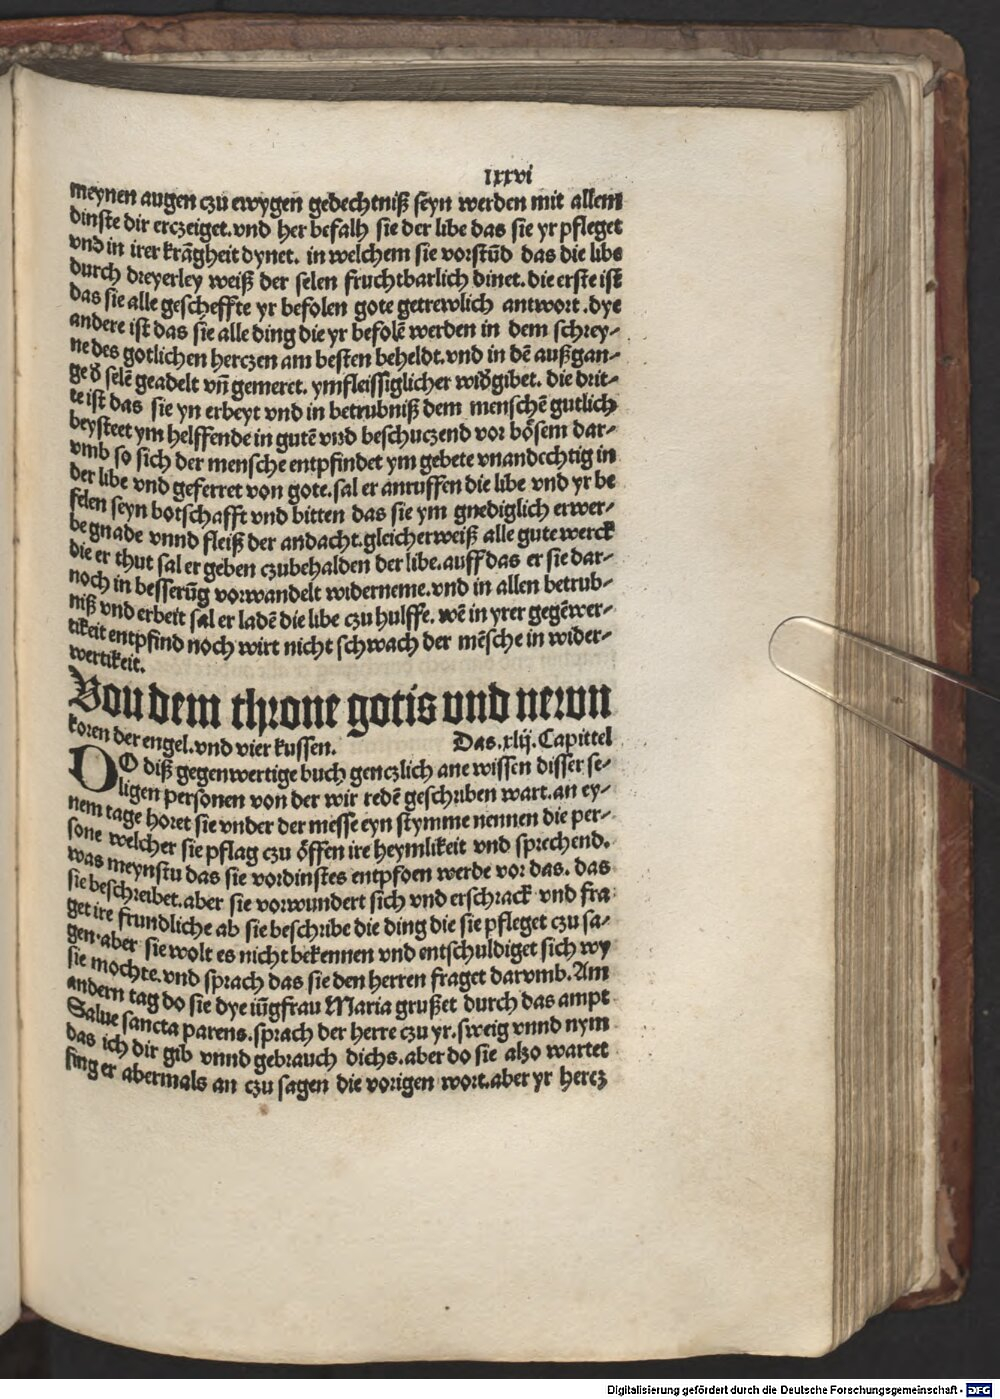 lxxvi
meynen augen czu ewygen gedechtniß seyn werden mit allem
dinste dir erczeiget. vnd her befalh sie der libe das sie yr pfleget
vnd in irer krãgheit dynet. in welchem sie vorstũd das die libe
durch dreyerley weiß der selen fruchtbarlich dinet. die erste ist
das sie alle gescheffte yr befolen gote getrewlich antwort. dye
andere ist das sie alle ding die yr befolẽ werden in dem schrey⸗
ne des gotlichen herczen am besten beheldt. vnd in dẽ außgan⸗
ge d̕ selẽ geadelt vñ gemeret. ymfleissiglicher wid̕gibet. die drit⸗
te ist das sie yn erbeyt vnd in betrubniß dem menschẽ gutlich
beysteet ym helffende in gutẽ vnd beschuczend vor bösem dar⸗
vmb so sich der mensche entpfindet ym gebete vnandechtig in
der libe vnd geferret von gote. sal er anruffen die libe vnd yr be
felen seyn botschafft vnd bitten das sie ym gnediglich erwer⸗
be gnade vnnd fleiß der andacht. gleicherweiß alle gute werck
die er thut sal er geben czubehalden der libe. auff das er sie dar⸗
noch in besserũg vorwandelt widerneme. vnd in allen betrub⸗
niß vnd erbeit sal er ladẽ die libe czu hulffe. wẽ in yrer gegẽwer⸗
tikeit entpfind noch wirt nicht schwach der mẽsche in wider⸗
wertikeit.
Von dem throne gotis vnd newn
koren der engel. vnd vier kussen. Das. xlij. Capittel
DO diß gegenwertige buch genczlich ane wissen disser se⸗
ligen personen von der wir redẽ geschriben wart. an ey⸗
nem tage horet sie vnder der messe eyn stymme nennen die per⸗
sone welcher sie pflag czu öffen ire heymlikeit vnd sprechend.
was meynstu das sie vordinstes entpfoen werde vor das. das
sie beschreibet. aber sie vorwundert sich vnd erschrack vnd fra
get ire frundliche ab sie beschribe die ding die sie pfleget czu sa⸗
gen. aber sie wolt es nicht bekennen vnd entschuldiget sich wy
sie mochte. vnd sprach das sie den herren fraget darvmb. Am
andern tag do sie dye iũgfrau Maria grußet durch das ampt
Salue sancta parens. sprach der herre czu yr. sweig vnnd nym
das ich dir gib vnnd gebrauch dichs. aber do sie also wartet
fing er abermals an czu sagen die vorigen wort. aber yr hercz
Digitalisierung gefördert durch die Deutsche Forschungsgemeinschaft - DFG